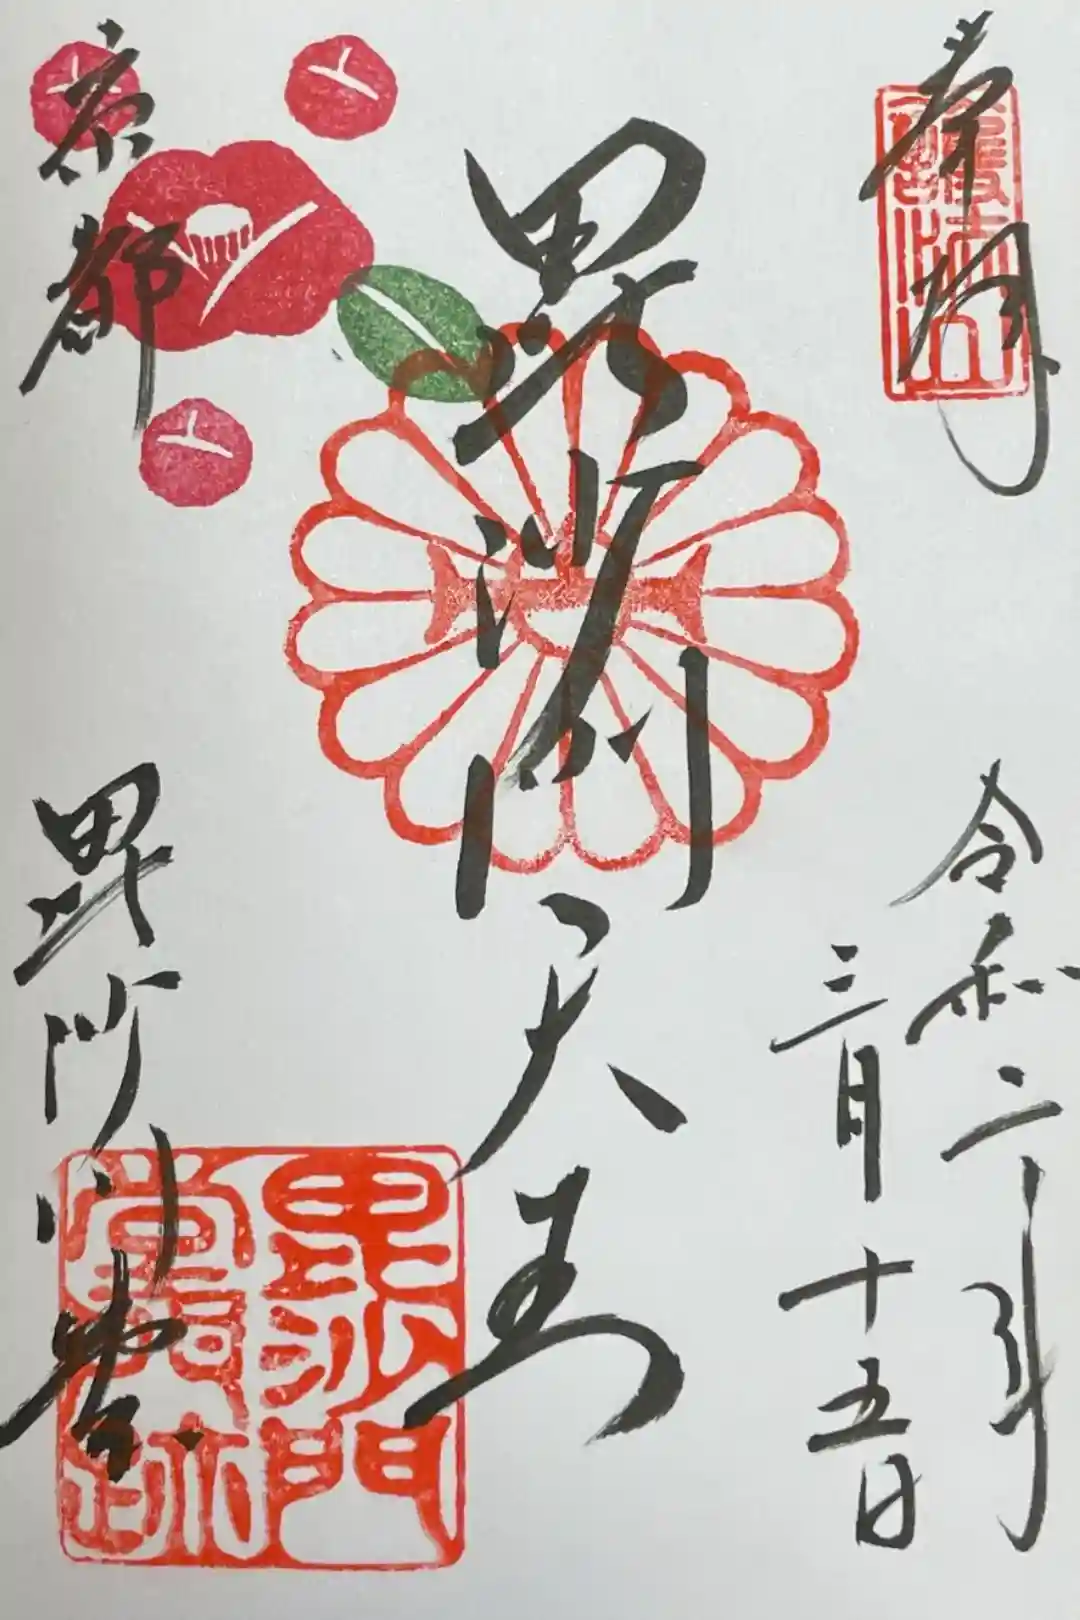 奉拝
護法山
令和二年
三月十五日
毘沙門天王
京都
毘沙門堂
毘沙門
堂 跡